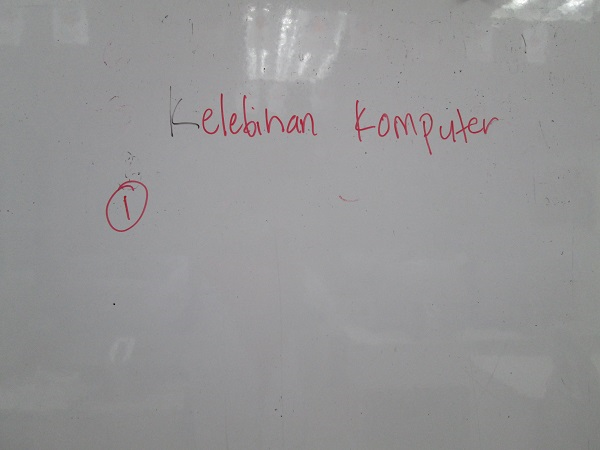 Kelebihan Komputer
1